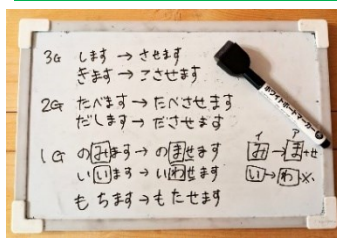 3G します → させます
きます → こさせます
2G たべます → たべさせます
だします → ださせます
1G のみます → のませます
いいます → いわせます
もちます → もたせます
イ ア
み → ませ
い → わ
ホワイトボードマーカー